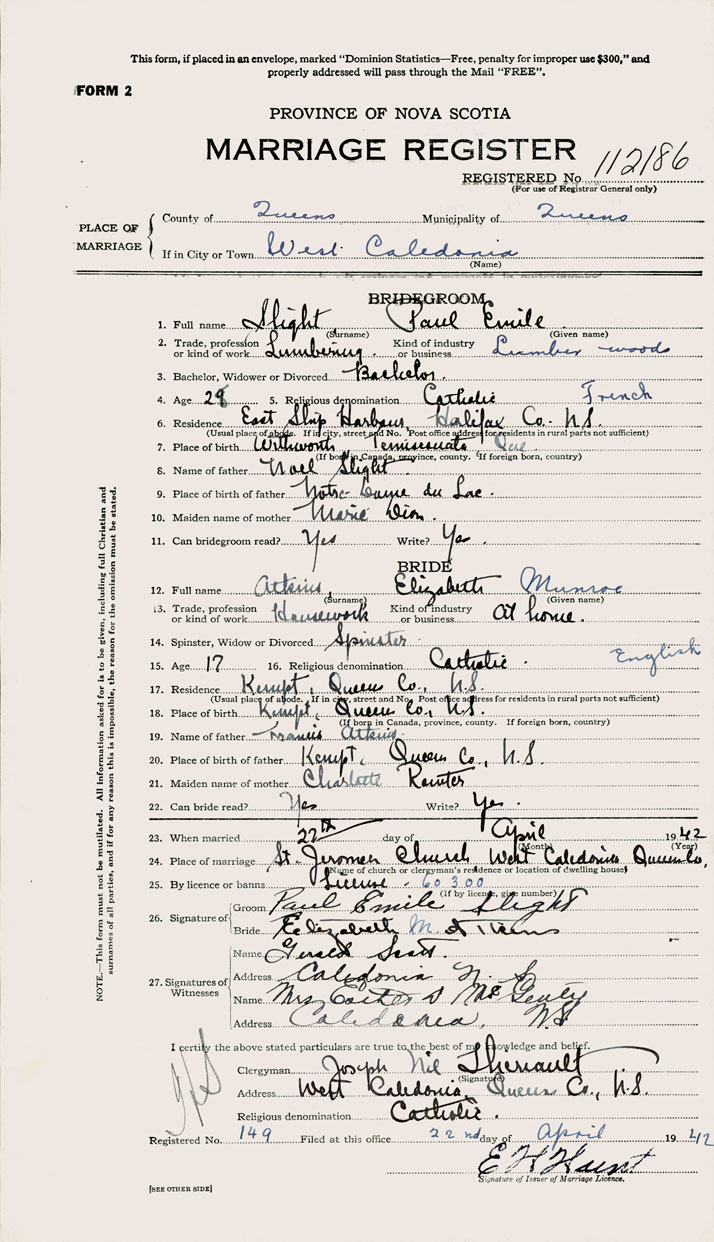 This form, if placed in an envelope, marked "Dominion Statistics—Free, penalty for improper use $300," and
properly addressed will pass through the Mail "FREE".
FORM 2
PROVINCE OF NOVA SCOTIA
MARRIAGE REGISTER
REGISTERED No. 112186
(For use of Registrar General only)
PLACE OF MARRIAGE
County of Queens Municipality of Queens
If in City or Town West Caledonia
(Name)
BRIDEGROOM
1. Full name Slight Paul Emile
(Surname) (Given name)
2. Trade, profession or kind of work Lumbering. Kind of industry or business Lumber woods
3. Bachelor, Widower or Divorced Bachelor.
4. Age 28 5. Religious denomination Catholic French
6. Residence East Ship Harbour, Halifax Co. N.S.
(Usual place of abode. If in city, street and No. Post office address for residents in rural parts not sufficient)
7. Place of birth Temiscouata Que
(If born in Canada, province, county. If foreign born, country)
8. Name of father Noel Slight
9. Place of birth of father Notre-Dame du Lac.
10. Maiden name of mother Marie Dion.
11. Can bridegroom read? Yes Write? Yes.
BRIDE
12. Full name Atkins, Elizabeth Munroe
(Surname) (Given name)
13. Trade, profession or kind of work Housework Kind of industry or business At home.
14. Spinster, Widow or Divorced Spinster
15. Age 17 16. Religious denomination Catholic. English
17. Residence Kempt, Queens Co., N.S.
(Usual place of abode. If in city, street and No. Post office address for residents in rural parts not sufficient)
18. Place of birth Kempt, Queens Co., N.S.
(If born in Canada, province, county. If foreign born, country)
19. Name of father Francis Atkins.
20. Place of birth of father Kempt, Queens Co., N.S.
21. Maiden name of mother Charlotte
22. Can bride read? Yes Write? Yes.
23. When married 22th day of April 1942
(Month) (Year)
24. Place of marriage St. Jeromes Church West Caledonia Queens Co,
(Name of church or clergyman's residence or location of dwelling house)
25. By licence or banns License. 60300
(If by licence, give number)
26. Signature of
Groom Paul Emile Slight
Bride Elizabeth M. Atkins
27. Signatures of Witnesses
Name Gerald Scott.
Address Caledonia N. S
Name Mrs
Address Caledonia, NS
I certify the above stated particulars are true to the best of my knowledge and belief.
Clergyman Joseph Nil Theriault
(Signature)
Address West Caledonia, Queens Co., N.S.
Religious denomination Catholic.
Registered No. 149 Filed at this office 22nd day of April 1942
E H Hunt
Signature of Issuer of Marriage Licence.
[SEE OTHER SIDE]
NOTE.—This form must not be mutilated. All information asked for is to be given, including full Christian and
surnames of all parties, and if for any reason this is impossible, the reason for the omission must be stated.